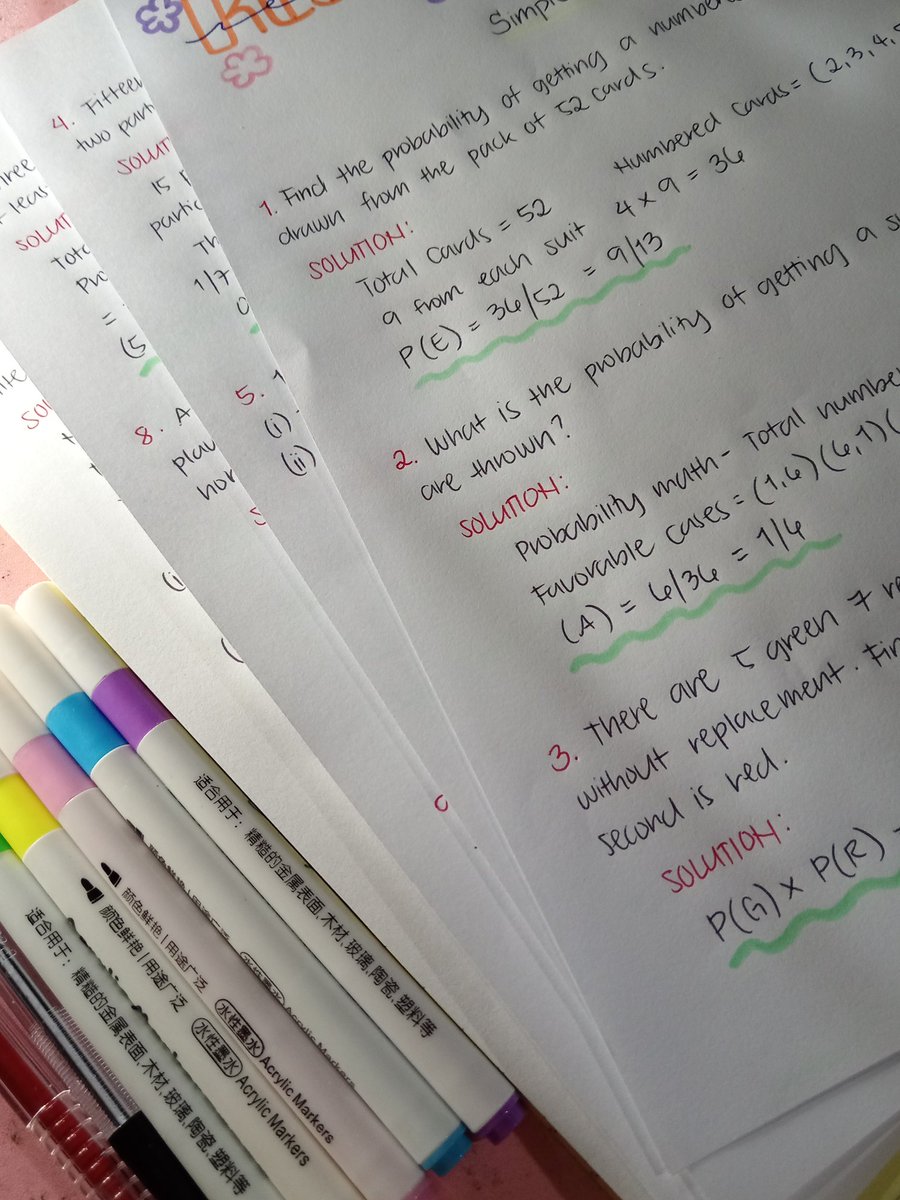 Simple
1. Find the probability of getting a numbered
drawn from the pack of 52 cards.
SOLUTION:
Total Cards = 52
Numbered Cards = (2,3,4,
9 from each suit 4 x 9 = 36
P(E) = 36/52 = 9/13
2. What is the probability of getting a
are thrown?
SOLUTION:
Probability math - Total number
Favorable cases = (1,6)(6,1)(
(A) = 6/36 = 1/6
3. There are 5 green 7
without replacement. Fin
second is red.
SOLUTION:
P(G) x P(R) -
4. Fifteen
two part
SOLUT
15
partic
Th
1/7
5.
(i)
(ii)
SOLUT
Tota
Pro
=
(5
8. A
play
hor
S
SO
(i)
适合用于：精糙的金属表面,木材,玻璃,陶瓷,塑料等
水性墨水 Acrylic Markers
颜色鲜艳|用途广泛
水性墨水 Acrylic Markers
颜色鲜艳|用途广泛
水性墨水 Acrylic Markers
适合用于：精糙的金属表面,木材,玻璃,陶瓷,塑料等